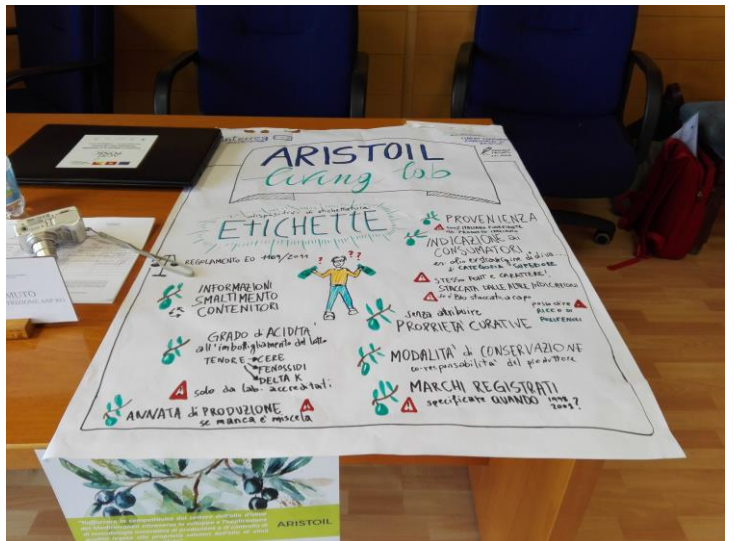 ARISTOIL
living lab
dispositivi di etichettatura
ETICHETTE
REGOLAMENTO EU 1169/2011
INFORMAZIONI
SMALTIMENTO
CONTENITORI
GRADO di ACIDITÀ
all'imbottigliamento del lotto
TENORE CERE
PEROSSIDI
DELTA K
solo da lab. accreditati
ANNATA di PRODUZIONE
se manca è miscela
??
PROVENIENZA
INDICAZIONE ai
CONSUMATORI
es. olio extravergine di oliva...
+ CATEGORIA SUPERIORE
STESSO FONT e CARATTERE!
STACCATA DALLE ALTRE INDICAZIONI
senza attribuire
PROPRIETÀ CURATIVE
posso dire
RICCO DI
POLIFENOLI
MODALITÀ di CONSERVAZIONE
co-responsabilità del produttore
MARCHI REGISTRATI
specificare QUANDO 1998
2001?
MUTO
ARISTOIL